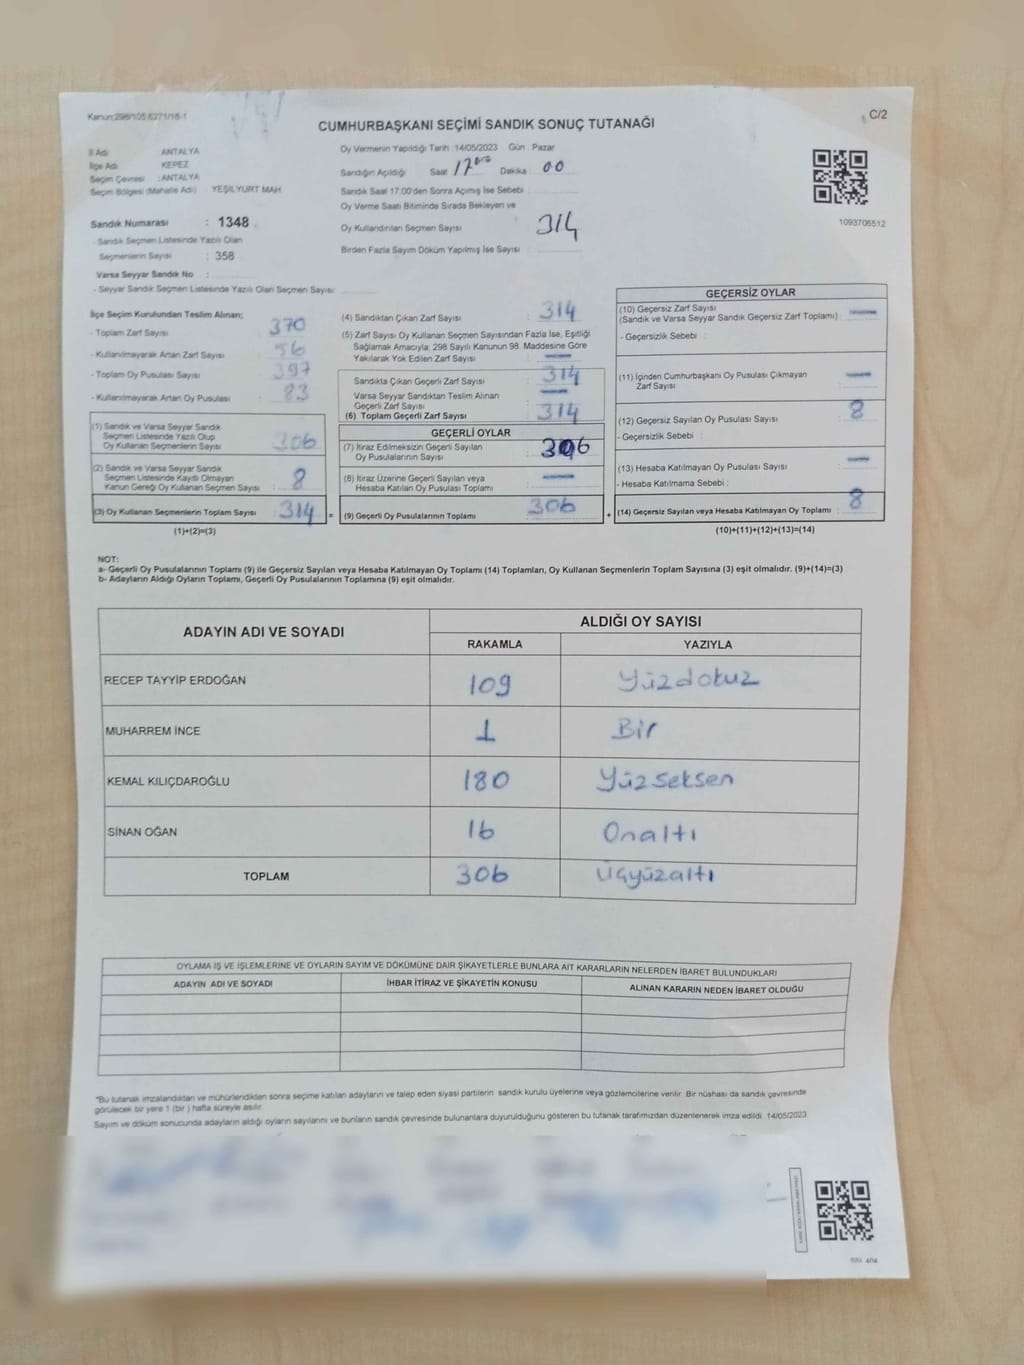 Kanun:298/105,6271/16-1
C/2
CUMHURBAŞKANI SEÇİMİ SANDIK SONUÇ TUTANAĞI
İl Adı ANTALYA
İlçe Adı KEPEZ
Seçim Çevresi : ANTALYA
Seçim Bölgesi (Mahalle Adı) YEŞİLYURT MAH.
Sandık Numarası : 1348
- Sandık Seçmen Listesinde Yazılı Olan
Seçmenlerin Sayısı : 358
Varsa Seyyar Sandık No :
- Seyyar Sandık Seçmen Listesinde Yazılı Olan Seçmen Sayısı
Oy Vermenin Yapıldığı Tarih : 14/05/2023 Gün : Pazar
Sandığın Açıldığı Saat 17⁰⁰ Dakika 00
Sandık Saat 17:00'den Sonra Açılmış İse Sebebi :
Oy Verme Saati Bitiminde Sırada Bekleyen ve
Oy Kullandırılan Seçmen Sayısı 314
Birden Fazla Sayım Döküm Yapılmış İse Sayısı :
1093706512
İlçe Seçim Kurulundan Teslim Alınan;
- Toplam Zarf Sayısı : 370
- Kullanılmayarak Artan Zarf Sayısı : 56
- Toplam Oy Pusulası Sayısı : 397
- Kullanılmayarak Artan Oy Pusulası : 83
(1) Sandık ve Varsa Seyyar Sandık
Seçmen Listesinde Yazılı Olup
Oy Kullanan Seçmenlerin Sayısı : 306
(2) Sandık ve Varsa Seyyar Sandık
Seçmen Listesinde Kaydı Olmayan
Kanun Gereği Oy Kullanan Seçmen Sayısı : 8
(3) Oy Kullanan Seçmenlerin Toplam Sayısı : 314
(1)+(2)=(3)
=
(4) Sandıktan Çıkan Zarf Sayısı : 314
(5) Zarf Sayısı Oy Kullanan Seçmen Sayısından Fazla İse, Eşitliği
Sağlamak Amacıyla, 298 Sayılı Kanunun 98. Maddesine Göre
Yakılarak Yok Edilen Zarf Sayısı : —
Sandıkta Çıkan Geçerli Zarf Sayısı : 314
Varsa Seyyar Sandıktan Teslim Alınan
Geçerli Zarf Sayısı : —
(6) Toplam Geçerli Zarf Sayısı : 314
GEÇERLİ OYLAR
(7) İtiraz Edilmeksizin Geçerli Sayılan
Oy Pusulalarının Sayısı : 306
(8) İtiraz Üzerine Geçerli Sayılan veya
Hesaba Katılan Oy Pusulası Toplamı : —
(9) Geçerli Oy Pusulalarının Toplamı : 306
+
GEÇERSİZ OYLAR
(10) Geçersiz Zarf Sayısı
(Sandık ve Varsa Seyyar Sandık Geçersiz Zarf Toplamı) : —
- Geçersizlik Sebebi :
(11) İçinden Cumhurbaşkanı Oy Pusulası Çıkmayan
Zarf Sayısı : —
(12) Geçersiz Sayılan Oy Pusulası Sayısı : 8
- Geçersizlik Sebebi :
(13) Hesaba Katılmayan Oy Pusulası Sayısı : —
- Hesaba Katılmama Sebebi :
(14) Geçersiz Sayılan veya Hesaba Katılmayan Oy Toplamı : 8
(10)+(11)+(12)+(13)=(14)
NOT:
a- Geçerli Oy Pusulalarının Toplamı (9) ile Geçersiz Sayılan veya Hesaba Katılmayan Oy Toplamı (14) Toplamları, Oy Kullanan Seçmenlerin Toplam Sayısına (3) eşit olmalıdır. (9)+(14)=(3)
b- Adayların Aldığı Oyların Toplamı, Geçerli Oy Pusulalarının Toplamına (9) eşit olmalıdır.
ADAYIN ADI VE SOYADI
ALDIĞI OY SAYISI
RAKAMLA YAZIYLA
RECEP TAYYİP ERDOĞAN 109 Yüzdokuz
MUHARREM İNCE 1 Bir
KEMAL KILIÇDAROĞLU 180 Yüzseksen
SİNAN OĞAN 16 Onaltı
TOPLAM 306 Üçyüzaltı
OYLAMA İŞ VE İŞLEMLERİNE VE OYLARIN SAYIM VE DÖKÜMÜNE DAİR ŞİKAYETLERLE BUNLARA AİT KARARLARIN NELERDEN İBARET BULUNDUKLARI
ADAYIN ADI VE SOYADI İHBAR İTİRAZ VE ŞİKAYETİN KONUSU ALINAN KARARIN NEDEN İBARET OLDUĞU
*Bu tutanak imzalandıktan ve mühürlendikten sonra seçime katılan adayların ve talep eden siyasi partilerin sandık kurulu üyelerine veya gözlemcilerine verilir. Bir nüshası da sandık çevresinde
görülecek bir yere 1 (bir) hafta süreyle asılır.
Sayım ve döküm sonucunda adayların aldığı oyların sayılarını ve bunların sandık çevresinde bulunanlara duyurulduğunu gösteren bu tutanak tarafımızdan düzenlenerek imza edildi. 14/05/2023